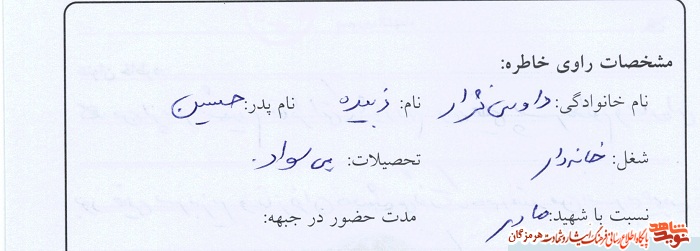 مشخصات راوی خاطره:
نام خانوادگی: داوسی نژاد نام: زبیده نام پدر: حسین
شغل: خانه دار تحصیلات: بی سواد.
نسبت با شهید: مادر مدت حضور در جبهه:
نوید شاهد
پایگاه اطلاع رسانی فرهنگ ایثار و شهادت هرمزگان